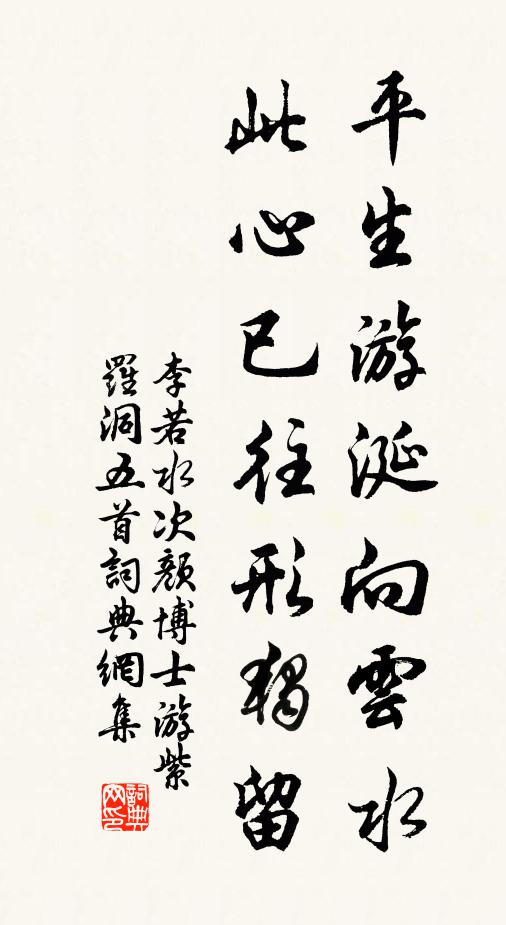 平生游涎向雲水
此心已往形獨留
李若水次顏博士游紫
羅洞五首詞典網集
詞典
网印